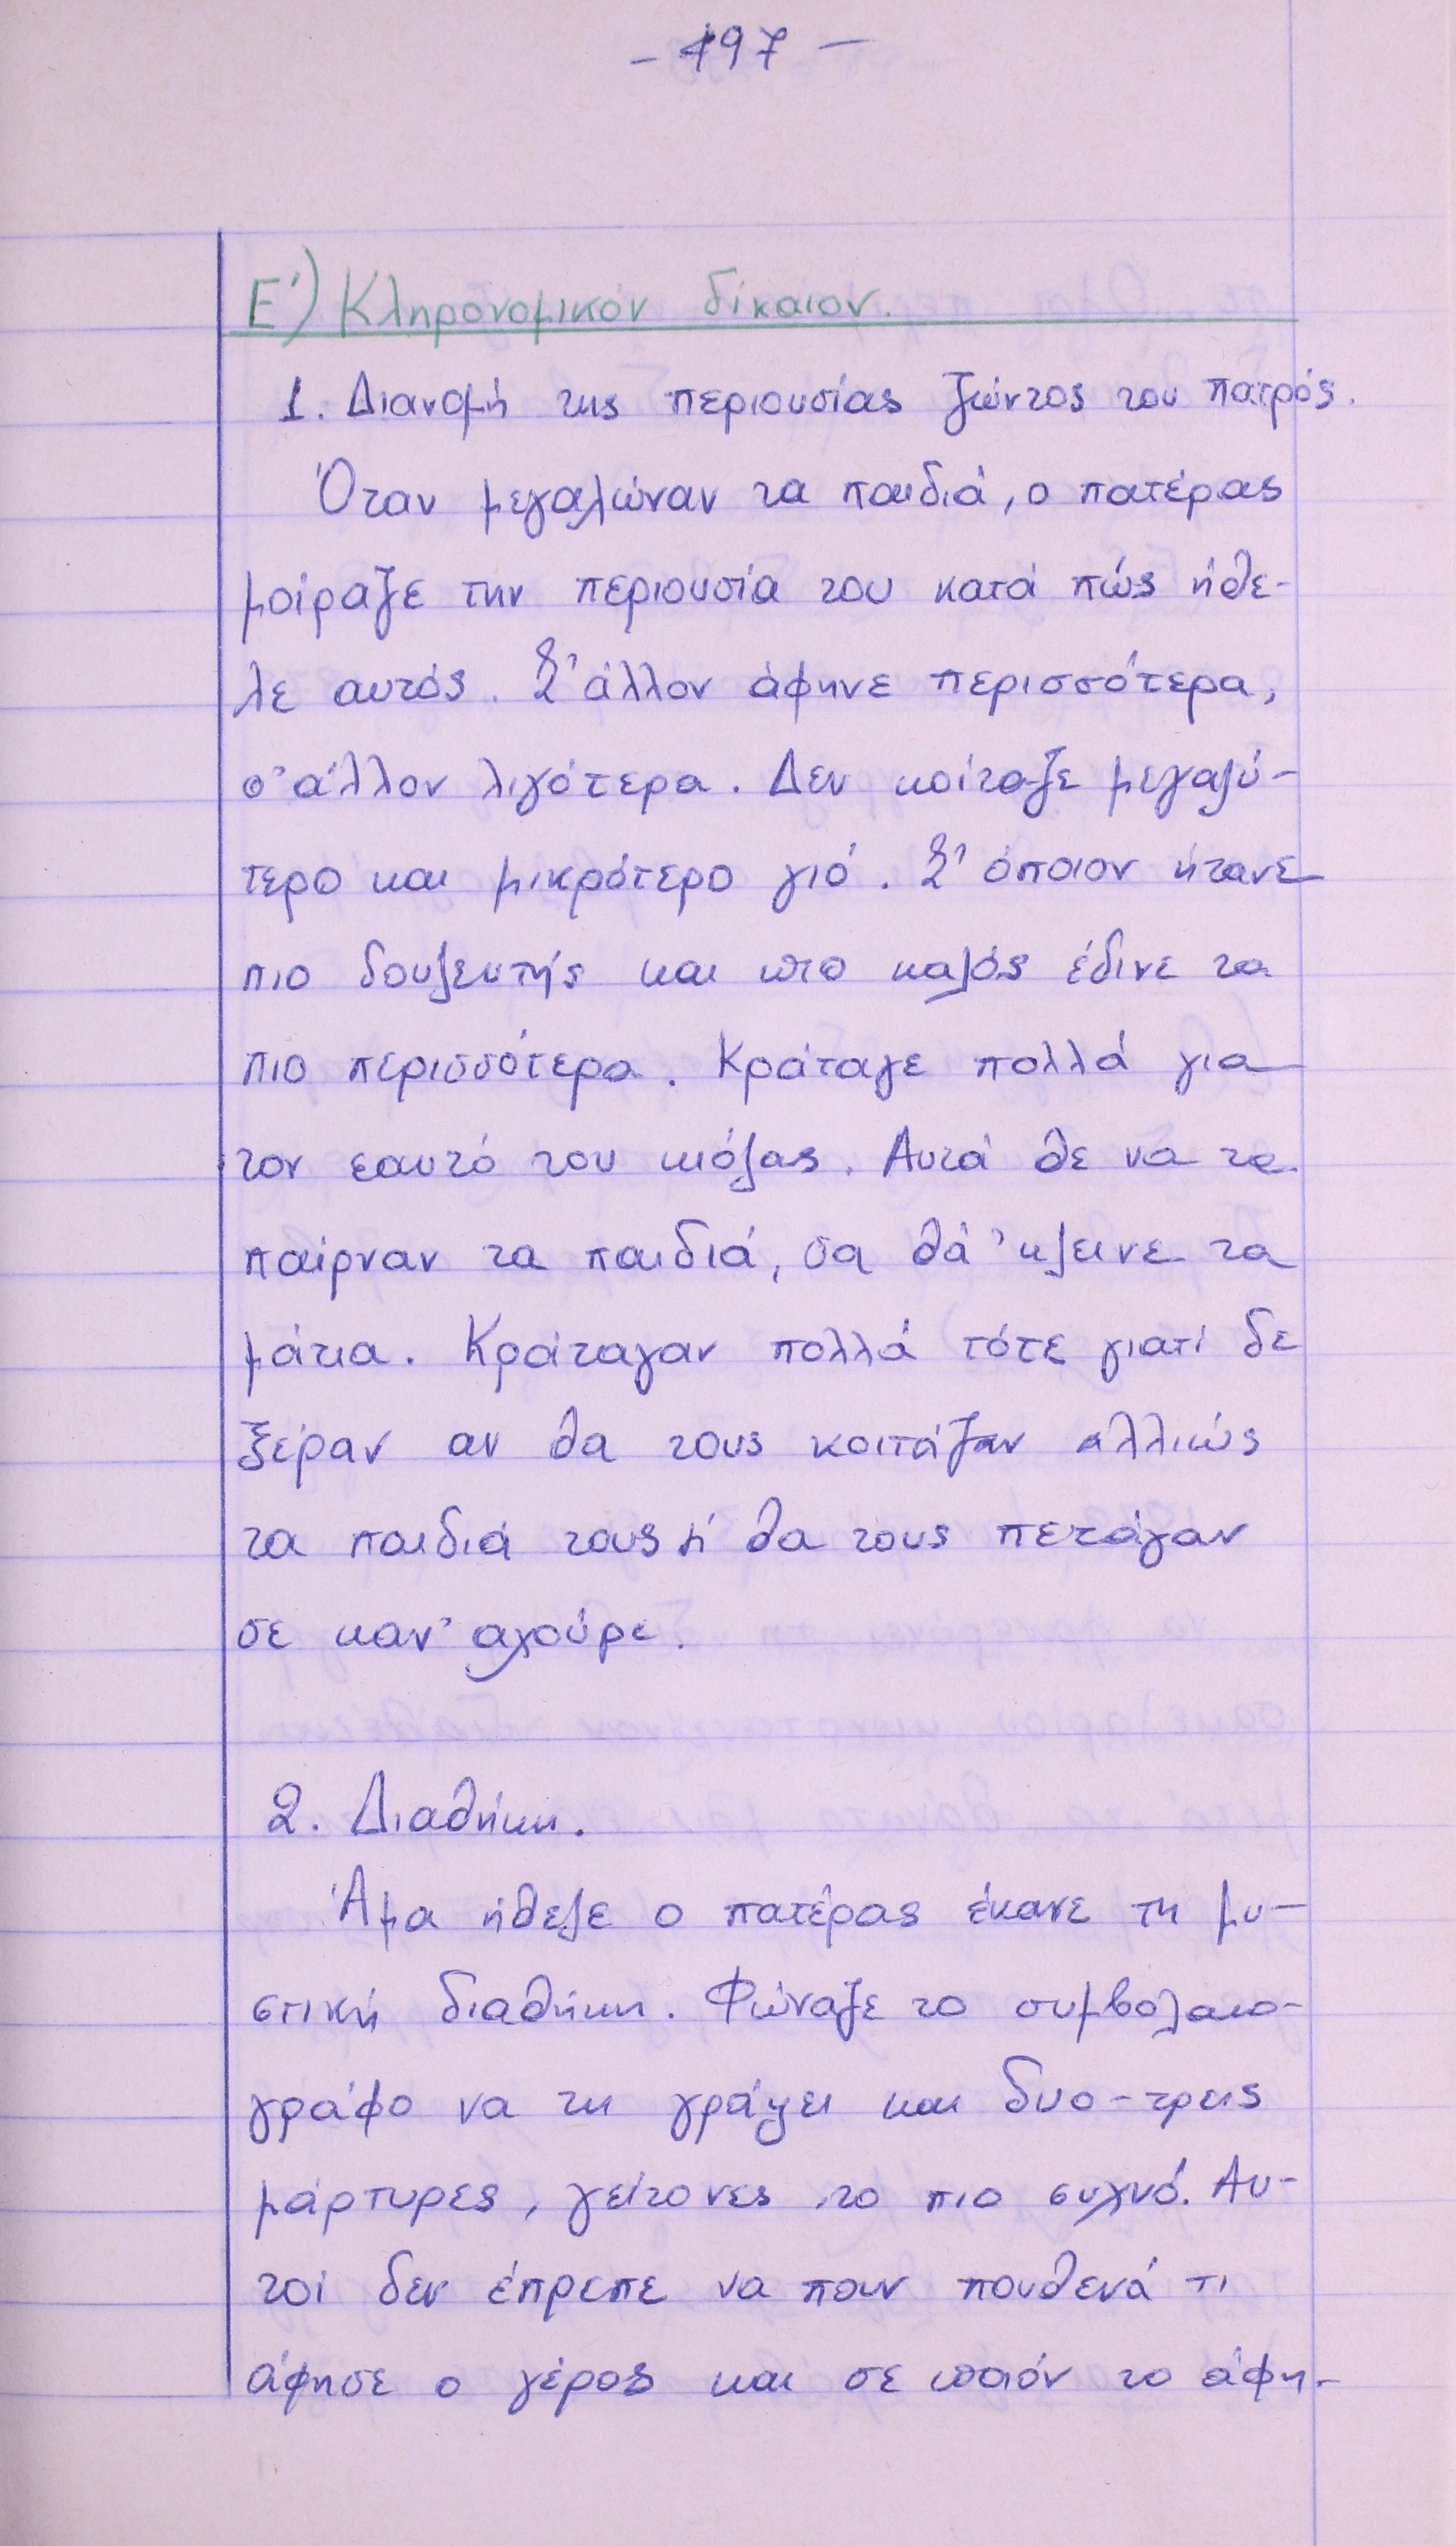 - 197 -
Ε') Κληρονομικόν δίκαιον.
1. Διανομή της περιουσίας ζώντος του πατρός.
Όταν μεγαλώναν τα παιδιά, ο πατέρας
μοίραζε την περιουσία του κατά πώς ήθε-
λε αυτός. Σ' άλλον άφηνε περισσότερα,
σ' άλλον λιγότερα. Δεν κοίταζε μεγαλύ-
τερο και μικρότερο γιό. Σ' όποιον ήτανε
πιο δουλευτής και πιο καλός έδινε τα
πιο περισσότερα. Κράταγε πολλά για
τον εαυτό του κιόλας. Αυτά θε να τα
παίρναν τα παιδιά, σα θά 'κλεινε τα
μάτια. Κράταγαν πολλά τότε γιατί δε
ξέραν αν θα τους κοιτάζαν αλλιώς
τα παιδιά τους ή θα τους πετάγαν
σε καν' αχούρι.
2. Διαθήκη.
Άμα ήθελε ο πατέρας έκανε τη μυ-
στική διαθήκη. Φώναζε το συμβολαιο-
γράφο να τη γράψει και δυο-τρεις
μάρτυρες, γείτονες το πιο συχνό. Αυ-
τοί δεν έπρεπε να πουν πουθενά τι
άφησε ο γέρος και σε ποιόν το άφη-